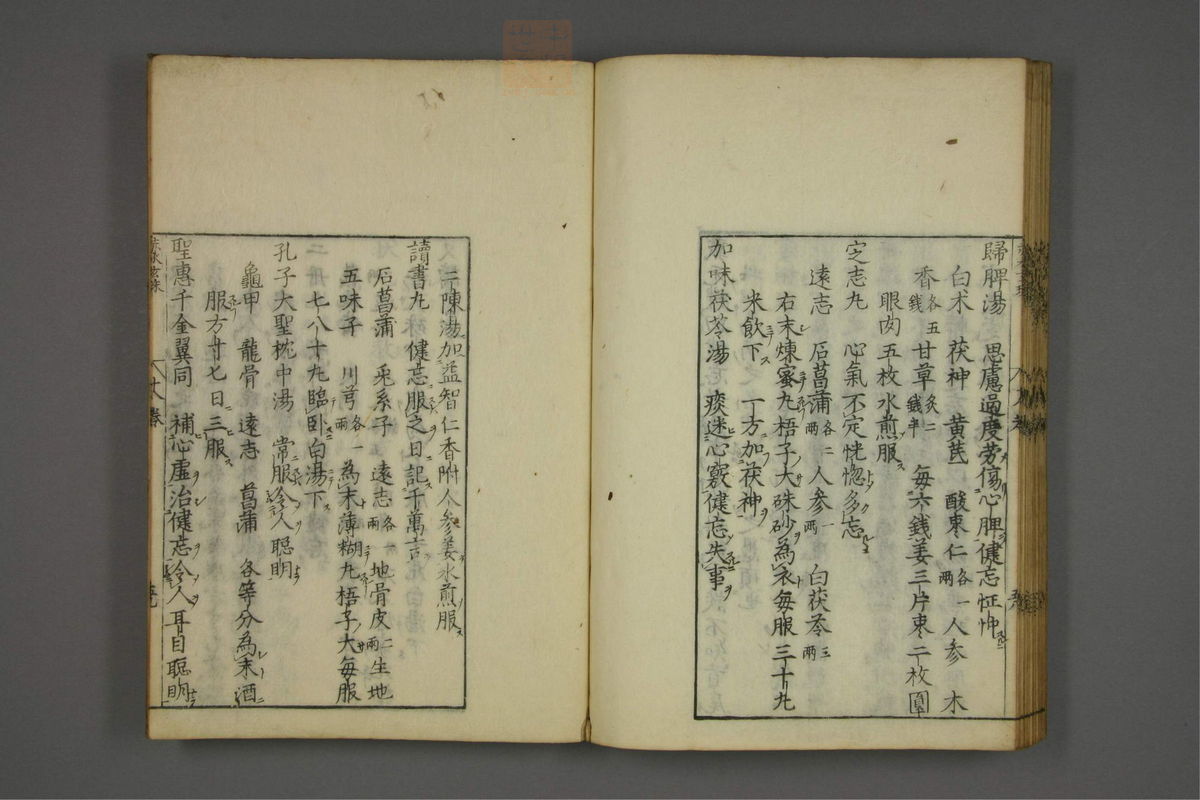 歸脾湯 思慮過度勞傷心脾健忘怔忡
白朮 茯神 黃芪 酸棗仁各一兩 人參 木
香各五錢 甘草炙二錢半 每六錢姜三片棗二枚圓
眼肉五枚水煎服
定志丸 心氣不定恍惚多忘
遠志 石菖蒲各二兩 人參一兩 白茯苓三兩
右末煉蜜丸梧子大硃砂為衣每服三十丸
米飲下 一方加茯神
加味茯苓湯 痰迷心竅健忘失事
二陳湯加益智仁香附人參姜水煎服
讀書丸 健忘服之日記千萬言
石菖蒲 兎糸子 遠志各一兩 地骨皮二兩 生地
五味子 川芎各一兩 為末薄糊丸梧子大每服
七八十丸臨卧白湯下
孔子大聖枕中湯 常服令人聡明
龜甲 龍骨 遠志 菖蒲 各等分為末酒
服方寸七日三服
聖惠千金翼同 補心虛治健忘令人耳目聡明